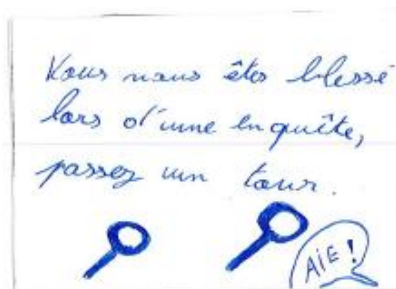 Vous nous êtes blessé
lors d'une enquête,
passez un tour.
AïE !